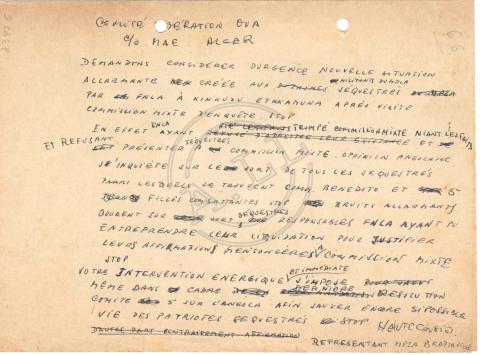 COMITÉ LIBERATION OUA
C/O MAE ALGER
DEMANDONS CONSIDÉRER DURGENCE NOUVELLE SITUATION
ALLARMANTE CRÉÉE AUX MILITANTS DU MPLA SÉQUESTRÉS
PAR LE FNLA À KINKUZU ET KAMUNA APRÈS VISITE
COMMISSION MIXTE D'ENQUÊTE STOP
EN EFFET AYANT FNLA TROMPÉ COMMISSION MIXTE NIANT LES FAITS
ET REFUSANT PRÉSENTER SÉQUESTRÉS À COMMISSION MIXTE. OPINION ANGOLAISE
S'INQUIÈTE SUR LE SORT DE TOUS LES SÉQUESTRÉS
PARMI LESQUELS SE TROUVENT COMM. BENEDITO ET 5
FILLES COMBATTANTES STOP BRUITS ALLARMANTS
COURENT SUR SORT SÉQUESTRÉS RESPONSABLES FNLA AYANT PU
ENTREPRENDRE LEUR LIQUIDATION POUR JUSTIFIER
LEURS AFFIRMATIONS MENSONGÈRES À COMMISSION MIXTE
STOP
VOTRE INTERVENTION ENERGIQUE ET IMMÉDIATE S'IMPOSE
MÊME DANS CADRE DERNIÈRE RÉSOLUTION
COMITÉ 5 SUR L'ANGOLA AFIN SAUVER ENCORE SI POSSIBLE
VIE DES PATRIOTES SEQUESTRÉS STOP HAUTE CONSID.
REPRESENTANT MPLA BRAZZAVILLE